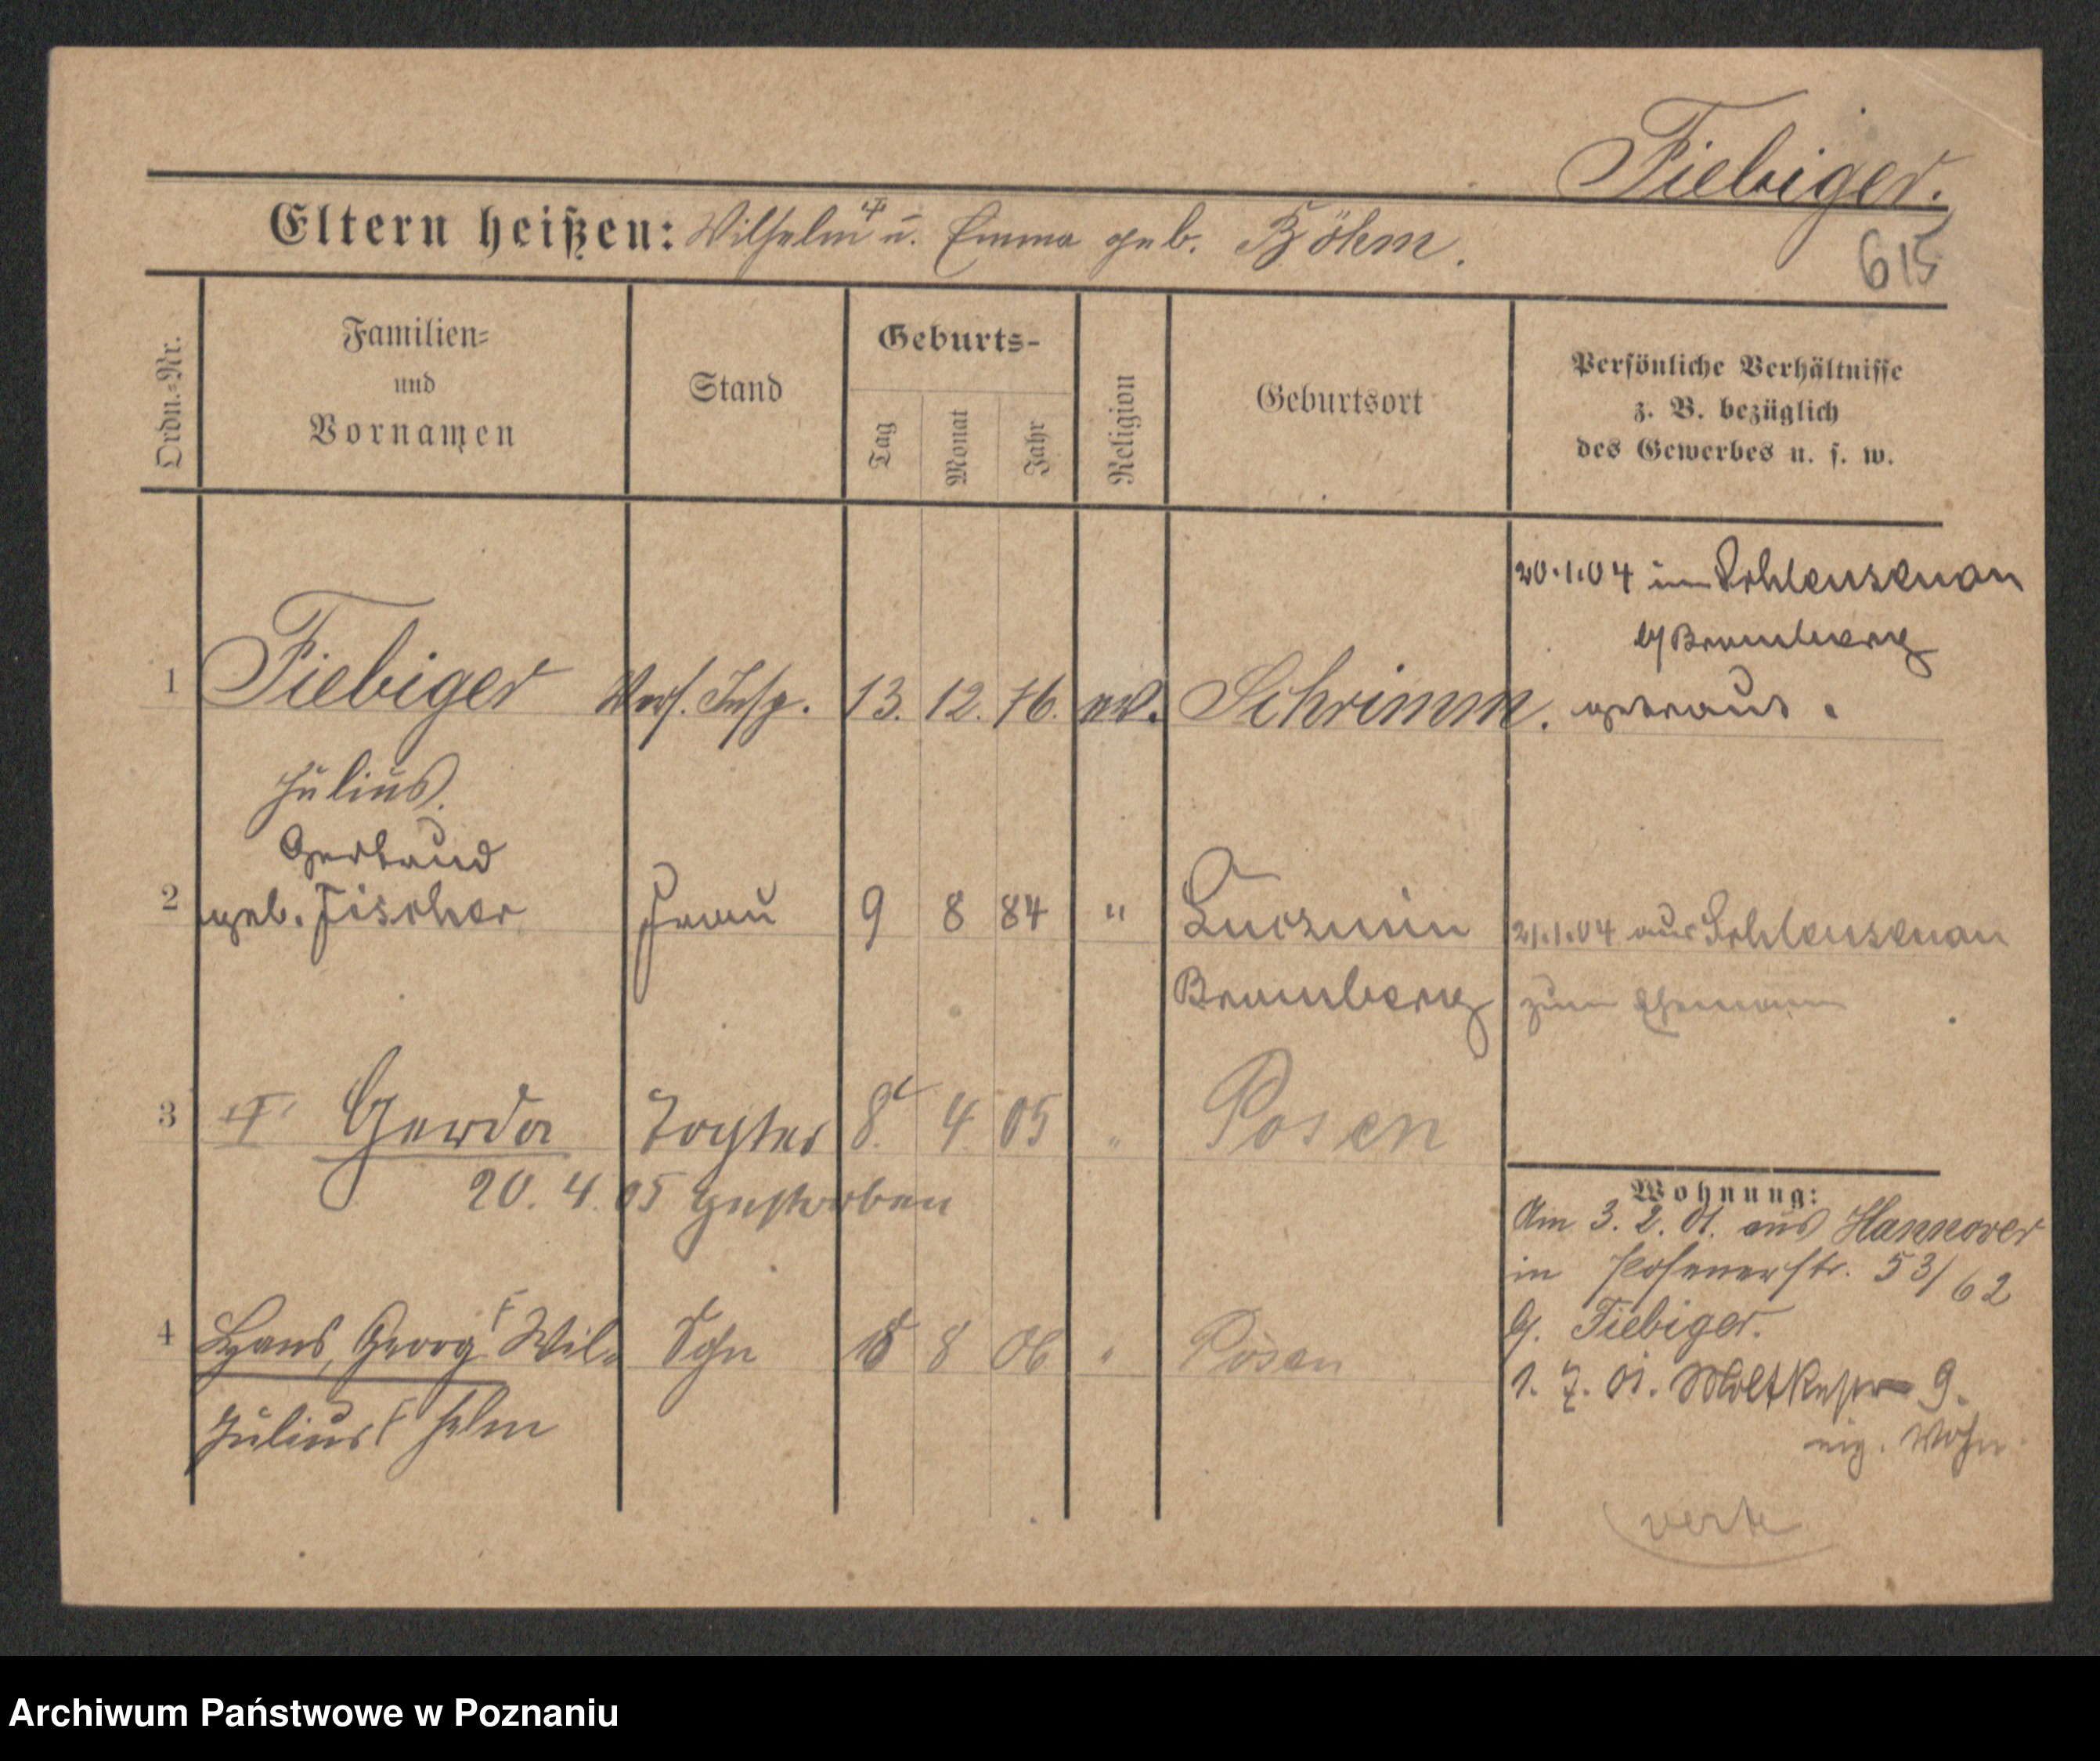 Fiebiger.
Eltern heißen: Wilhelm u. Emma geb. Böhm.
615
Ordn.=Nr.
Familien=
und
Vornamen
Stand
Geburts-
Tag
Monat
Jahr
Religion
Geburtsort
Persönliche Verhältnisse
z. B. bezüglich
des Gewerbes u. s. w.
20.1.04 in Schleusenau
b/ Bromberg
1 Fiebiger Vers. Insp. 13. 12. 76. ev. Schrimm. getraut.
Julius.
Gertrud
2 geb. Fischer Frau 9 8 84 " 21.1.04 aus Schleusenau
Bromberg zum Ehemann
3 Gerda Tochter 8. 4 05 " Posen
20. 4. 05 gestorben
Wohnung:
Am 3. 2. 01. aus Hannover
in Posenerstr. 53/62
b/. Fiebiger.
4 Hans, Georg Wil- Sohn 8 06 " Posen
1. 7. 01. Moltkestr 9.
Julius helm
eig. Wohn.
verte
Archiwum Państwowe w Poznaniu